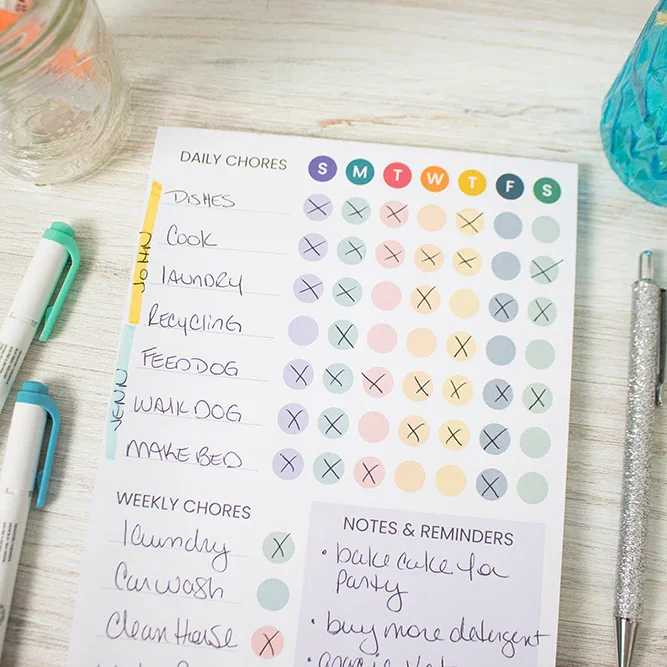 DAILY CHORES S M T W T F S
DISHES
COOK
LAUNDRY
RECYCLING
FEED DOG
WALK DOG
MAKE BED
JOHN
JENN
WEEKLY CHORES
laundry
Car wash
Clean House
NOTES & REMINDERS
• bake cake for
party
• buy more detergent